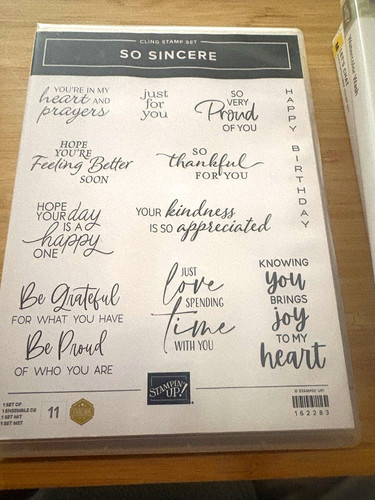 CLING STAMP SET
SO SINCERE
YOU'RE IN MY
heart AND
prayers
just
for
you
SO
VERY
Proud
OF YOU
HAPPY BIRTHDAY
HOPE
YOU'RE
Feeling Better
SOON
SO
thankful
FOR YOU
HOPE
YOUR day
IS A
happy
ONE
YOUR kindness
IS SO appreciated
Be Grateful
FOR WHAT YOU HAVE
Be Proud
OF WHO YOU ARE
JUST
love
SPENDING
time
WITH YOU
KNOWING
you
BRINGS
joy
TO MY
heart
1 SET OF
1 ENSEMBLE DE
1 SET MIT
1 SET MET
11
STAMPIN'
UP!
© STAMPIN' UP!
162283